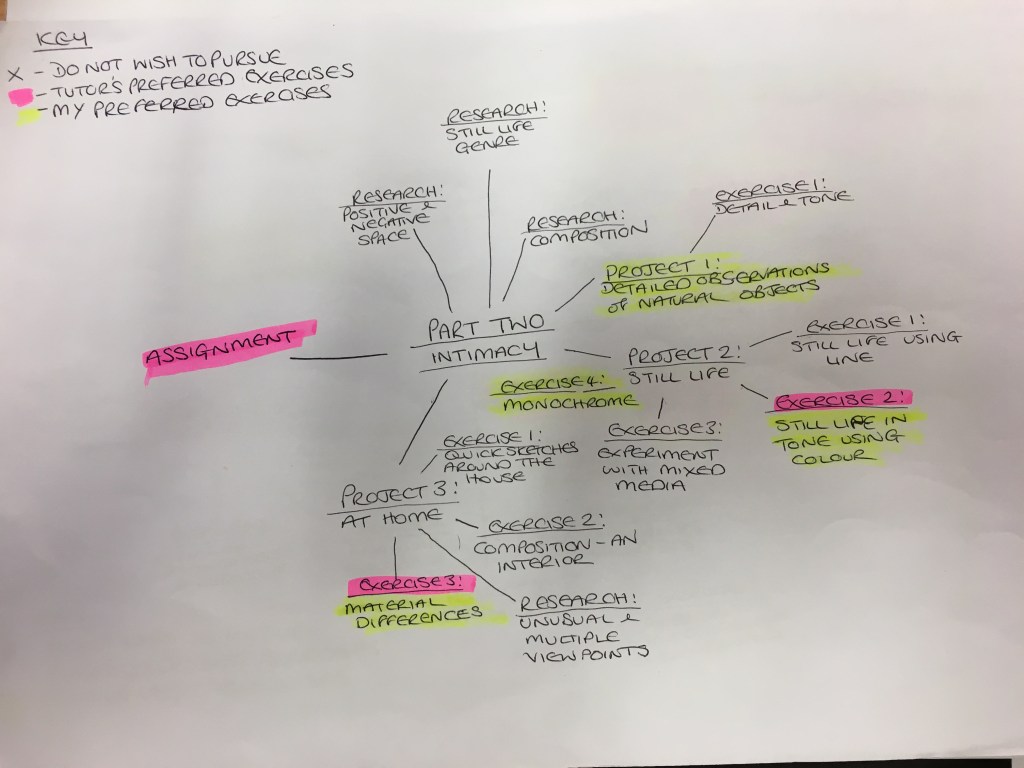 KEY
X - DO NOT WISH TO PURSUE
- TUTOR'S PREFERRED EXERCISES
- MY PREFERRED EXERCISES
RESEARCH:
STILL LIFE
GENRE
RESEARCH:
POSITIVE &
NEGATIVE
SPACE
RESEARCH:
COMPOSITION
EXERCISE 1:
DETAIL & TONE
PROJECT 1:
DETAILED OBSERVATIONS
OF NATURAL OBJECTS
ASSIGNMENT
PART TWO
INTIMACY
PROJECT 2:
STILL LIFE
EXERCISE 1:
STILL LIFE USING
LINE
EXERCISE 2:
STILL LIFE IN
TONE USING
COLOUR
EXERCISE 4:
MONOCHROME
EXERCISE 3:
EXPERIMENT
WITH MIXED
MEDIA
EXERCISE 1:
QUICK SKETCHES
AROUND THE
HOUSE
PROJECT 3:
AT HOME
EXERCISE 2:
COMPOSITION - AN
INTERIOR
EXERCISE 3:
MATERIAL
DIFFERENCES
RESEARCH:
UNUSUAL &
MULTIPLE
VIEWPOINTS